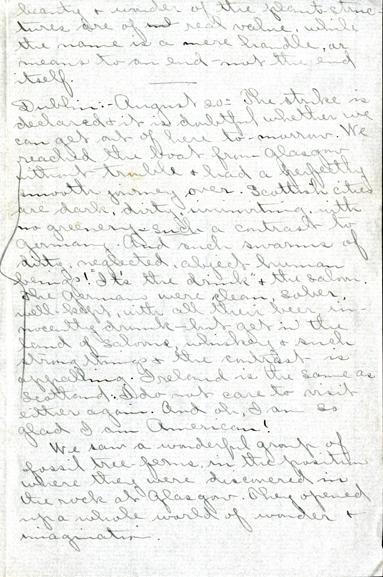 beauty & wonder of the plant struc-
tures are of real value, while
the name is a mere handle, or
means to an end - not the end
itself.
Dublin:- August 20 - The strike is
declared & it is doubtful whether we
can get out of here to-morrow. We
reached the boat from Glasgow
without trouble & had a perfectly
smooth journey over. Scottish cities
are dark, dirty, uninviting, with
no greenery - such a contrast to
Germany. And such swarms of
dirty, neglected, abject human
beings! "It's the drink" & the saloon.
The Germans were clean, sober,
well kept, with all their beer, in-
nocently drunk - but get in the
land of saloons, whiskey & such
strong things & the contrast is
appalling. Ireland is the same as
Scotland. I do not care to visit
either again. And oh, I am so
glad I am American!
We saw a wonderful group of
fossil tree-ferns, in the position
where they were discovered in
the rock at Glasgow. They opened
up a whole world of wonder &
imagination.